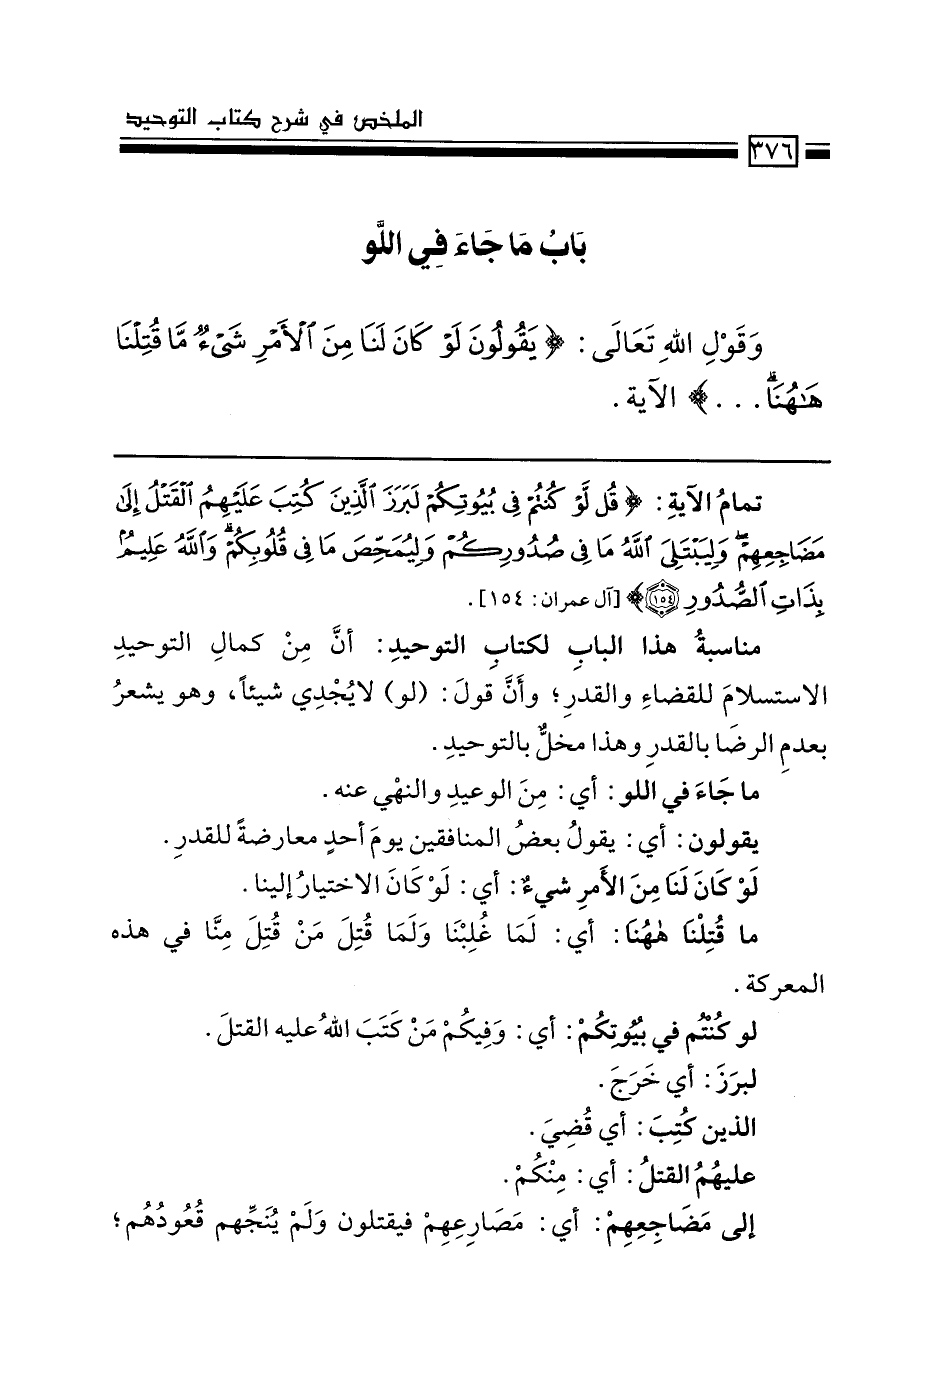 الملخص في شرح كتاب التوحيد
٣٧٦
بَابُ مَا جَاءَ فِي اللَّو
وَقَوْلِ اللهِ تَعَالَى: ﴿يَقُولُونَ لَوْ كَانَ لَنَا مِنَ ٱلْأَمْرِ شَىْءٌ مَّا قُتِلْنَا
هَـٰهُنَاۗ...﴾ الآية.
تمامُ الآيةِ: ﴿قُل لَّوْ كُنتُمْ فِى بُيُوتِكُمْ لَبَرَزَ ٱلَّذِينَ كُتِبَ عَلَيْهِمُ ٱلْقَتْلُ إِلَىٰ
مَضَاجِعِهِمْۖ وَلِيَبْتَلِىَ ٱللَّهُ مَا فِى صُدُورِكُمْ وَلِيُمَحِّصَ مَا فِى قُلُوبِكُمْۗ وَٱللَّهُ عَلِيمٌۢ
بِذَاتِ ٱلصُّدُورِ ١٥٤﴾ [آل عمران: ١٥٤].
مناسبةُ هذا البابِ لكتابِ التوحيدِ: أنَّ مِنْ كمالِ التوحيدِ
الاستسلامَ للقضاءِ والقدرِ؛ وأنَّ قولَ: (لو) لايُجْدِي شيئاً، وهو يشعرُ
بعدمِ الرضَا بالقدرِ وهذا مخلٌّ بالتوحيدِ.
ما جَاءَ في اللو: أي: مِنَ الوعيدِ والنهْي عنه.
يقولون: أي: يقولُ بعضُ المنافقين يومَ أحدٍ معارضةً للقدرِ.
لَوْ كَانَ لَنَا مِنَ الأَمرِ شيءٌ: أي: لَوْ كَانَ الاختيارُ إلينا.
ما قُتِلْنَا هٰهُنَا: أي: لَمَا غُلِبْنَا وَلَمَا قُتِلَ مَنْ قُتِلَ مِنَّا في هذه
المعركة.
لو كُنْتُم في بُيُوتِكُمْ: أي: وَفِيكُمْ مَنْ كَتَبَ اللهُ عليه القتلَ.
لبرَزَ: أي خَرَجَ.
الذين كُتِبَ: أي قُضِيَ.
عليهُمُ القتلُ: أي: مِنْكُمْ.
إلى مَضَاجِعِهِمْ: أي: مَصَارِعِهِمْ فيقتلون وَلَمْ يُنَجِّهم قُعُودُهُم؛